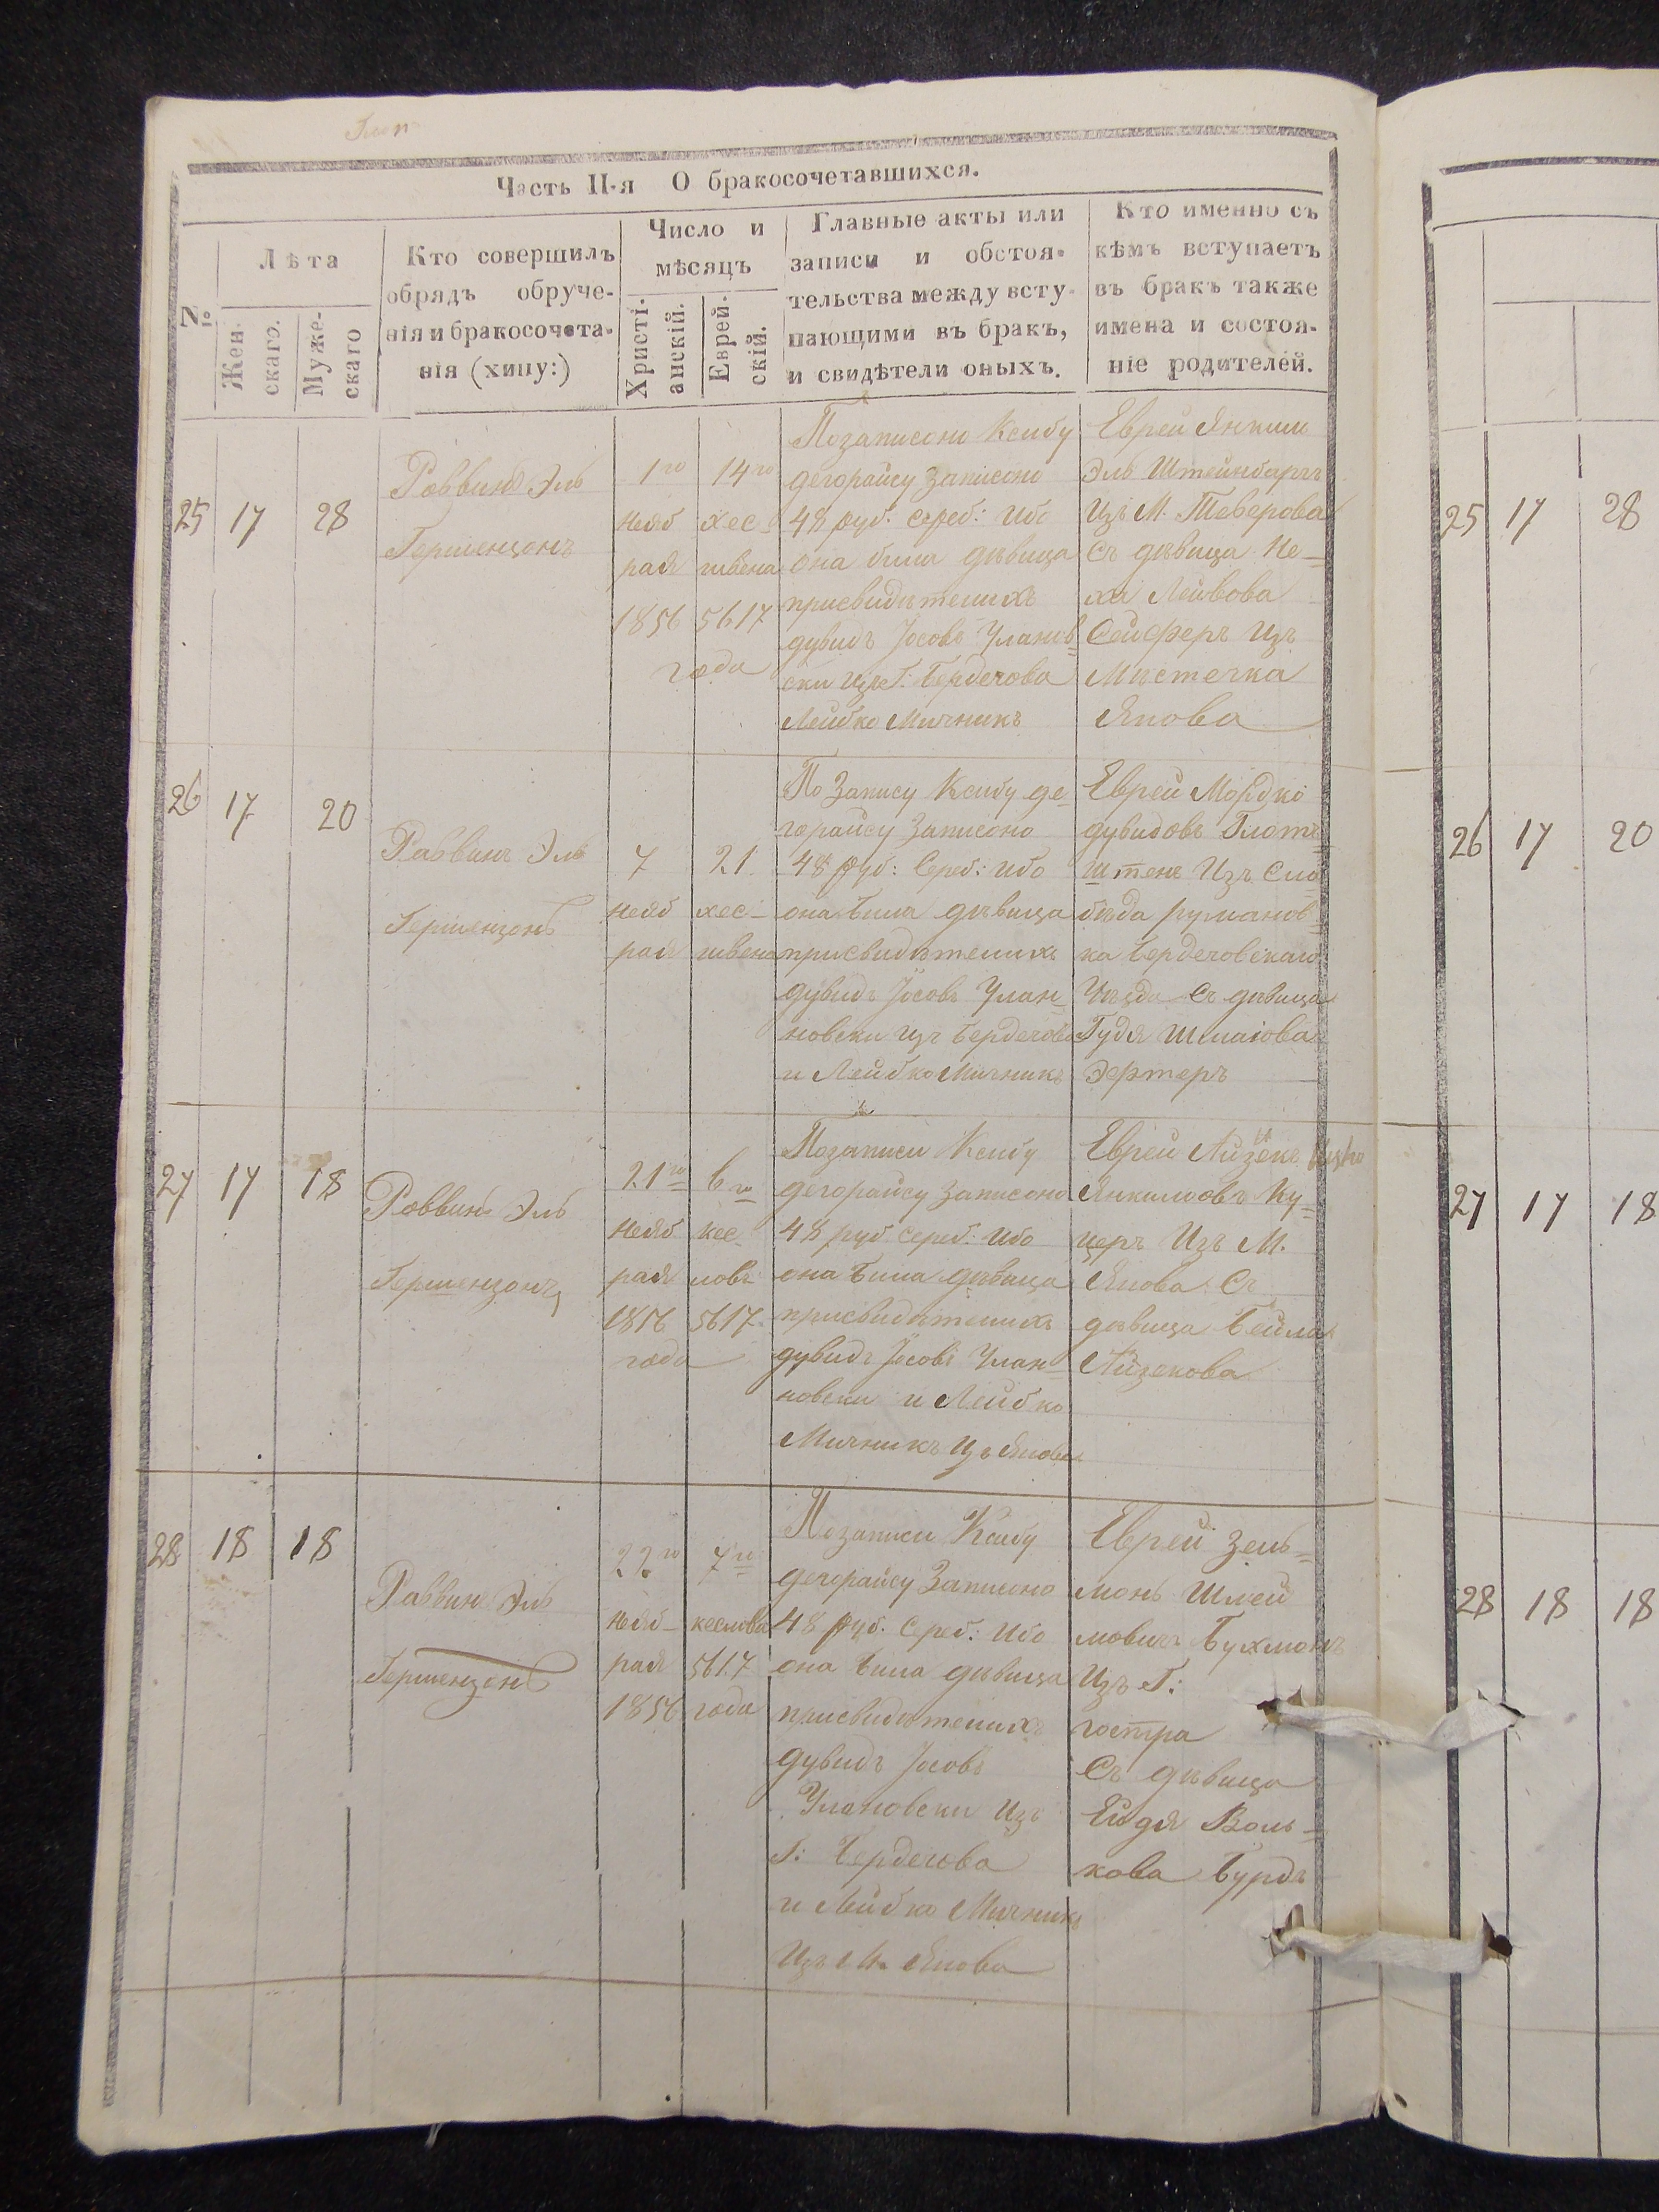 Часть II-я О бракосочетавшихся.
№
Лѣта
Жен-
скаго.
Муже-
скаго
Кто совершилъ
обрядъ обруче-
нія и бракосочета-
нія (хипу:)
Число и
мѣсяцъ
Христі-
анскій.
Еврей-
скій.
Главные акты или
записи и обстоя-
тельства между всту-
пающими въ бракъ,
и свидѣтели оныхъ.
Кто именно съ
кѣмъ вступаетъ
въ бракъ также
имена и состоя-
ніе родителей.
25
17
28
Раввинъ Эль
Гершензонъ
1го
Нояб
рая
1856
14го
хес-
швена
5617
года
Позаписоно Ксибу
дегорайсу записоно
48 руб. сереб: Ибо
она била дѣвица
присвидѣтелихъ
дувидъ Јосовъ Уланов
ски изъ Г: Бердечова
Лейбко Мичникъ
Еврей Янкиль
Эль Штейнбаргъ
Изъ М. Теверова
Съ дѣвица Не-
ха Лейвова
Сейферъ Изъ
Мѣстечка
Янова
26
17
20
Раввинъ Эль
Гершензонъ
7
Нояб
рая
21
хес-
швена
По Запису Ксибу де-
горайсу Записоно
48 Руб: Сереб: Ибо
она Била дѣвица
присвидѣтелихъ
дувидъ Јосовъ Улан-
новски изъ Бердечова
и Лейбко Мичникъ
Еврей Мордко
дувидовъ Глот
штенъ Изъ Сло
бѣда румянов
ка Бердечовскаго
Уѣзда Съ дѣвица
Гудя Шмаюова
Эфтеръ
27
17
18
Раввинъ Эль
Гершензонъ
21го
Нояб
рая
1856
года
6го
кес-
ловъ
5617
Позаписи Ксибу
дегорайсу Записоно
48 руб сереб: Ибо
она Била дѣвица
присвидѣтелихъ
дувидъ Јосовъ Улан-
новски и Лейбко
Мичникъ Изъ Янова
Еврей Айзекъ
Янкиловъ Ку-
церъ Изъ М.
Янова Съ
дѣвица Бейла
Айзекова
28
18
18
Раввинъ Эль
Гершензонъ
22го
Нояб-
рая
1856
7го
кеслова
5617
года
Позаписи Ксибу
дегорайсу Записоно
48 Руб. Сереб: Ибо
она Била дѣвица
присвидѣтелихъ
дувидъ Јосовъ
Улановски Изъ
Г: Бердечова
и Лейбко Мичникъ
Изъ М. Янова
Еврей Зель-
монъ Шлей
мовичъ Бухмонъ
Изъ Г:
гостра
Съ дѣвица
Ейдя Воль-
кова Бурдъ
25
17
28
26
17
20
27
17
18
28
18
18